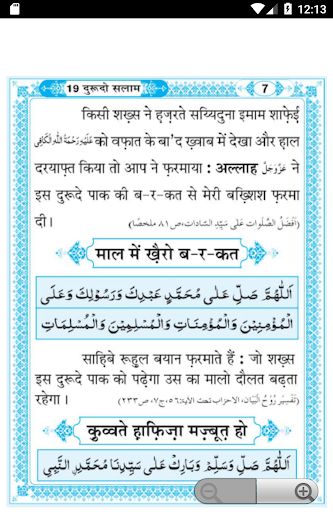 12:13
19 दुरूदो सलाम
7
किसी शख़्स ने हज़रते सय्यिदुना इमाम शाफ़ेई
عَلَيْهِ رَحْمَةُ اللّٰهِ الْكَافِى को वफ़ात के बा'द ख़्वाब में देखा और हाल
दरयाफ़्त किया तो आप ने फ़रमाया : अल्लाह عَزَّوَجَلَّ ने
इस दुरूदे पाक की ब-र-कत से मेरी बख़्शिश फ़रमा
दी। (اَفْضَلُ الصَّلَوات عَلٰى سَيِّدِ السّادات،ص٨١ ملخصًا)
माल में ख़ैरो ब-र-कत
اَللّٰهُمَّ صَلِّ عَلٰى مُحَمَّدٍ عَبْدِكَ وَرَسُوْلِكَ وَعَلَى
الْمُؤْمِنِيْنَ وَالْمُؤْمِنَاتِ وَالْمُسْلِمِيْنَ وَالْمُسْلِمَاتِ
साहिबे रूहुल बयान फ़रमाते हैं : जो शख़्स
इस दुरूदे पाक को पढ़ेगा उस का मालो दौलत बढ़ता
रहेगा। (تَفْسِير رُوْحُ الْبَيَان، الاحزاب تحت الاية:٥٦،ج٧،ص٢٣٣)
कुव्वते ह़ाफ़िज़ा मज़्बूत़ हो
اَللّٰهُمَّ صَلِّ وَسَلِّمْ وَبَارِكْ عَلٰى سَيِّدِنَا مُحَمَّدِ ۨ النَّبِىِّ